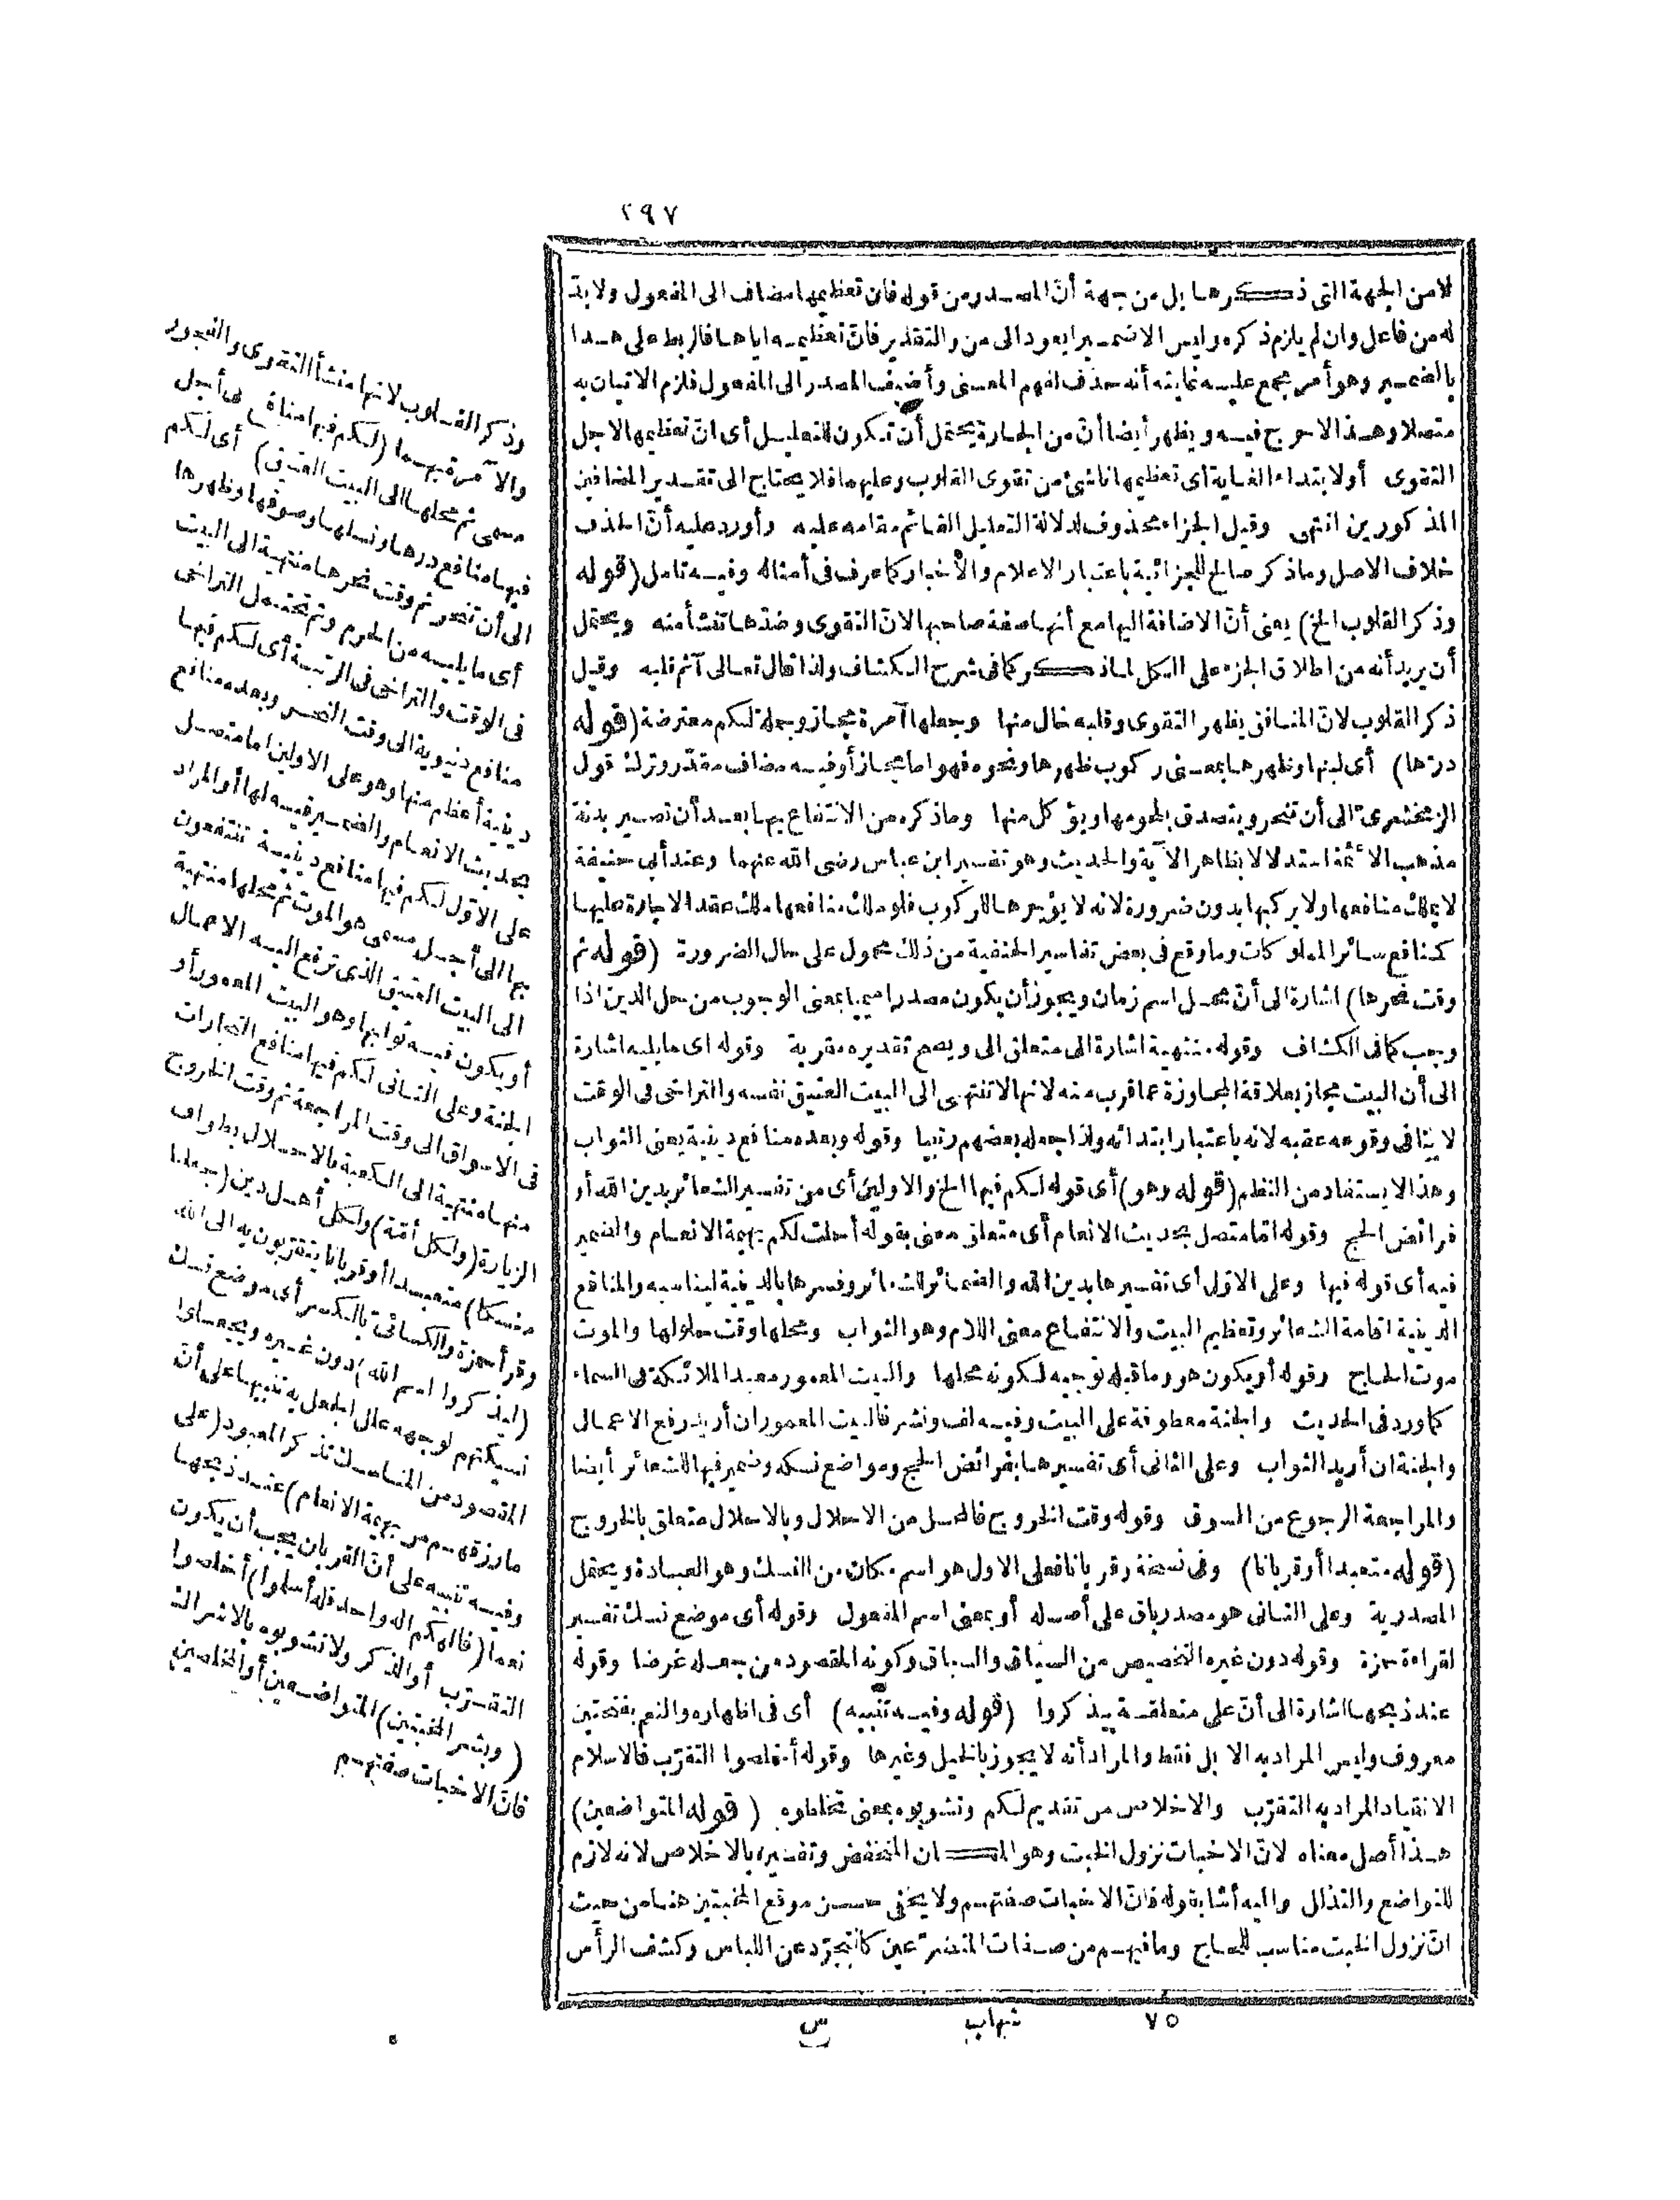 ٢٩٧
لا من الجهة التى ذكرها بل من جهة أنّ المصدر من قوله فان تعظيمها مضاف الى المفعول ولا بدّ
له من فاعل وان لم يلزم ذكره وليس الا ضميرا يعود الى من والتقدير فانّ تعظيمه اياها فالربط على هذا
بالضمير وهو أمر مجمع عليه غايته أنه حذف لفهم المعنى وأضيف المصدر الى المفعول فلزم الاتيان به
متصلا وهذا لا حرج فيه ويظهر أيضا أنّ من الجارة يحتمل أن تكون للتعليل أى انّ تعظيمها لاجل
التقوى أو لابتداء الغاية أى تعظيمها ناشئ من تقوى القلوب وعليهما فلا يحتاج الى تقدير المضافين
المذكورين انتهى وقيل الجزاء محذوف لدلالة التعليل القائم مقامه عليه وأورد عليه أنّ الحذف
خلاف الاصل وما ذكر صالح للجزائية باعتبار الاعلام والأخبار كما عرف فى أمثاله وفيه تأمل (قوله
وذكر القلوب الخ) يعنى أنّ الاضافة اليها مع أنها صفة صاحبها لانّ التقوى وضدّها تنشأ منه ويحتمل
أن يريد أنه من اطلاق الجزء على الكل لما ذكر كما فى شرح الكشاف ولذا قال تعالى آثم قلبه وقيل
ذكر القلوب لانّ المنافق يظهر التقوى وقلبه خال منها وجعلها آمرة مجاز وجملة لكم معترضة (قوله
درّها) أى لبنها وظهرها بمعنى ركوب ظهرها ونحوه فهو اما مجاز أو فيه مضاف مقدّر وترك قول
الزمخشرىّ الى أن تنحر ويتصدق بلحومها ويؤكل منها وما ذكره من الانتفاع بها بعد أن تصير بدنة
مذهب الائمّة استدلالا بظاهر الآية والحديث وهو تفسير ابن عباس رضى الله عنهما وعند أبى حنيفة
لا يملك منافعها ولا يركبها بدون ضرورة لانه لا يؤجرها للركوب فلو ملك منافعها ملك عقد الاجارة عليها
كمنافع سائر المملوكات وما وقع فى بعض تفاسير الحنفية من ذلك محمول على حال الضرورة (قوله ثم
وقت نحرها) اشارة الى أنّ محل اسم زمان ويجوز أن يكون مصدرا ميميا بمعنى الوجوب من حل الدين اذا
وجب كما فى الكشاف وقوله منتهية اشارة الى متعلق الى ويصح تقديره مقربة وقوله أى ما يليه اشارة
الى أن البيت مجاز بعلاقة المجاورة عما قرب منه لانها لا تنتهى الى البيت العتيق نفسه والتراخى فى الوقت
لا ينافى وقوعه عقبه لانه باعتبار ابتدائه ولذا جعله بعضهم رتبيا وقوله وبعده منافع دينية يعنى الثواب
وهذا لا يستفاد من النظم (قوله وهو) أى قوله لكم فيها الخ والاولين أى من تفسير الشعائر بدين الله أو
فرائض الحج وقوله امّا متصل بحديث الانعام أى متعلق معنى بقوله أحلت لكم بهيمة الانعام والضمير
فيه أى قوله فيها وعلى الاوّل أى تفسيرها بدين الله والضمائر للشعائر وفسرها بالدينية ليناسبه والمنافع
الدينية اقامة الشعائر وتعظيم البيت والانتفاع معنى اللام وهو الثواب ومحلها وقت حلولها والموت
موت الحاج وقوله أو يكون هو وما قبله توجيه لكونه محلها والبيت المعمور معبد الملائكة فى السماء
كما ورد فى الحديث والجنة معطوفة على البيت وفيه لف ونشر فالبيت المعمور ان أريد رفع الاعمال
والجنة ان أريد الثواب وعلى الثانى أى تفسيرها بفرائض الحج ومواضع نسكه وضمير فيها للشعائر أيضا
والمراجعة الرجوع من السوق وقوله وقت الخروج فالمحل من الاحلال وبالاحلال متعلق بالخروج
(قوله متعبدا أو قربانا) وفى نسخة وقربانا فعلى الاول هو اسم مكان من النسك وهو العبادة ويحتمل
المصدرية وعلى الثانى هو مصدر باق على أصله أو بمعنى اسم المفعول وقوله أى موضع نسك تفسير
لقراءة حمزة وقوله دون غيره التخصيص من السياق والسباق وكونه المقصود من جعله غرضا وقوله
عند ذبحها اشارة الى أنّ على متعلقة بيذكروا (قوله وفيه تنبيه) أى فى اظهاره والنعم بفتحتين
معروف وليس المراد به الابل فقط والمراد أنه لا يجوز بالخيل وغيرها وقوله أخلصوا التقرّب فالاسلام
الانقياد المراد به التقرّب والاخلاص من تقديم لكم وتشوبوه بمعنى تخلطوه (قوله المتواضعين)
هذا أصل معناه لانّ الاخبات نزول الخبت وهو المكان المنخفض وتفسيره بالاخلاص لانه لازم
للتواضع والتذلل واليه أشار بقوله فانّ الاخبات صفتهم ولا يخفى حسن موقع المخبتين هنا من حيث
انّ نزول الخبت مناسب للحاج وما فيهم من صفات المتضرّعين كالتجرّد عن اللباس وكشف الرأس
وذكر القلوب لانها منشأ التقوى والفجور
والآمرة بهما (لكم فيها منافع الى أجل
مسمى ثم محلها الى البيت العتيق) أى لكم
فيها منافع درها ونسلها وصوفها وظهرها
الى أن تنحر ثم وقت نحرها منتهية الى البيت
أى ما يليه من الحرم وثم تحتمل التراخى
فى الوقت والتراخى فى الرتبة أى لكم فيها
منافع دنيوية الى وقت النحر وبعده منافع
دينية أعظم منها وهو على الاولين اما متصل
بحديث الانعام والضمير فيه لها أو المراد
على الاوّل لكم فيها منافع دينية تنتفعون
بها الى أجل مسمى هو الموت ثم محلها منتهية
الى البيت العتيق الذى ترفع اليه الاعمال
أو يكون فيه ثوابها وهو البيت المعمور أو
الجنة وعلى الثانى لكم فيها منافع التجارات
فى الاسواق الى وقت المراجعة ثم وقت الخروج
منها منتهية الى الكعبة بالاحلال بطواف
الزيارة (ولكل أمّة) ولكل أهل دين (جعلنا
منسكا) متعبدا أو قربانا يتقرّبون به الى الله
وقرأ حمزة والكسائى بالكسر أى موضع نسك
(ليذكروا اسم الله) دون غيره ويجعلوا
نسيكتهم لوجهه علل الجعل به تنبيها على أنّ
المقصود من المناسك تذكر المعبود (على
ما رزقهم من بهيمة الانعام) عند ذبحها
وفيه تنبيه على أنّ القربان يجب أن يكون
نعما (فالهكم اله واحد فله أسلموا) أخلصوا
التقرّب أو الذكر ولا تشوبوه بالاشراك
(وبشر المخبتين) المتواضعين أو المخلصين
فانّ الاخبات صفتهم
٧٥ شهاب س